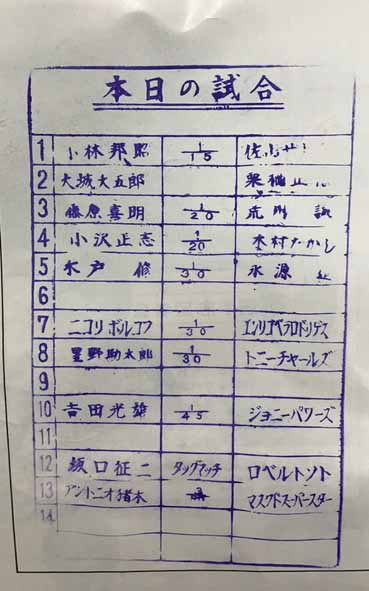 本日の試合
1 小林邦昭 1/15
2 大城大五郎 栗栖正伸
3 藤原喜明 1/20 荒川 誠
4 小沢正志 1/20 木村たかし
5 木戸 修 1/30 永源
6
7 ニコリボルコフ 1/30
8 星野勘太郎 1/30 トニーチャールズ
9
10 吉田光雄 1/45 ジョニーパワーズ
11
12 坂口征二 タッグマッチ ロベルトソト
13 アントニオ猪木 マスクドスーパースター
14